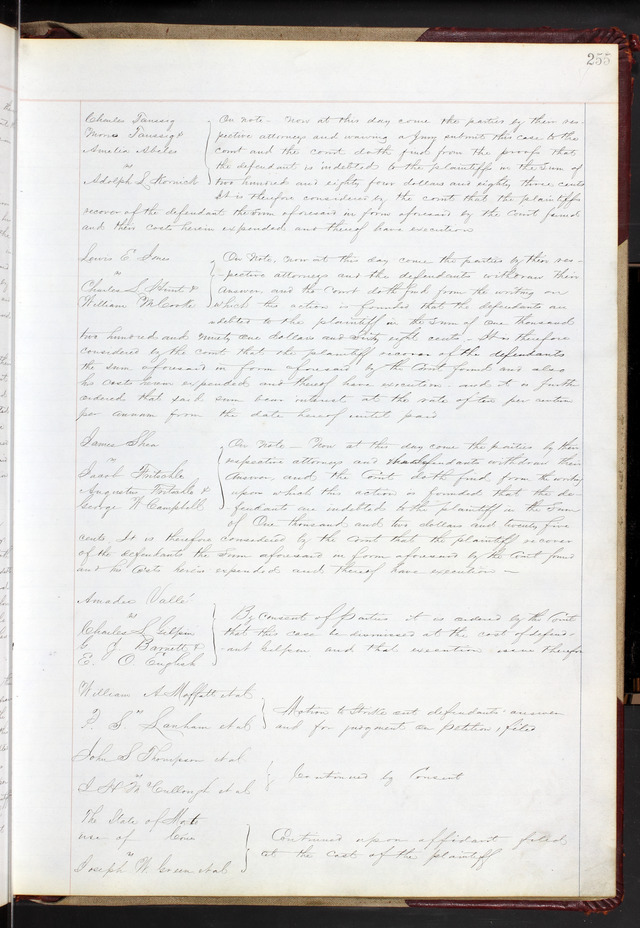 255
Charles Taussig
Morris Taussig &
Amelia Abeles
vs
Adolph L Kornick
On note - Now at this day come the parties by their res-
pective attorneys and waiving a Jury submit this case to the
court and the court doth find from the proofs that
the defendant is indebted to the plaintiffs in the sum of
two hundred and eighty four dollars and eighty three cents
It is therefore considered by the court that the plaintiffs
recover of the defendant the sum aforesaid in form aforesaid by the Court found
and their costs herein expended and thereof have execution
Lewis E Jones
vs
Charles L Hunt &
William M Cooke
On Note, now at this day come the parties by their res-
-pective attorneys and the defendants withdraw their
answer and the Court doth find from the writing on
which the action is founded that the defendants are
indebted to the plaintiff in the sum of One thousand
two hundred and ninety one dollars and sixty eight cents - It is therefore
considered by the court that the plaintiff recover of the defendants
the sum aforesaid in form aforesaid by the Court found and also
his costs herein expended and thereof have execution - and it is further
ordered that said sum bear interest at the rate of ten per centum
per annum from the date hereof until paid
James Shea
vs
Jacob Fritschle
Augustus Fritschle &
George W Campbell
On Note - Now at this day come the parties by their
respective attorneys and the defendants withdraw their
answer, and the Court doth find from the writing
upon which this action is founded that the de-
fendants are indebted to the plaintiff in the sum
of One thousand and two dollars and twenty five
cents. It is therefore considered by the Court that the plaintiff recover
of the defendants the sum aforesaid in form aforesaid by the Court found
and his Costs herein expended and thereof have execution -
Amadee Vallé
vs
Charles L Gilpin
G J Barnett &
E. O English
By consent of Parties it is ordered by the Court
that this case be dismissed at the cost of defend-
-ant Gilpin and that execution issue therefor
William A Moffatt et al
vs
P. S Lanham et al
Motion to Strike out defendants answer
and for judgment on Petition, filed
John S Thompson et al
vs
J H McCullough et al
Continued by Consent
The State of Mo to
use of Cone
vs
Joseph W Green et al
Continued upon affidavit filed
at the cost of the plaintiff